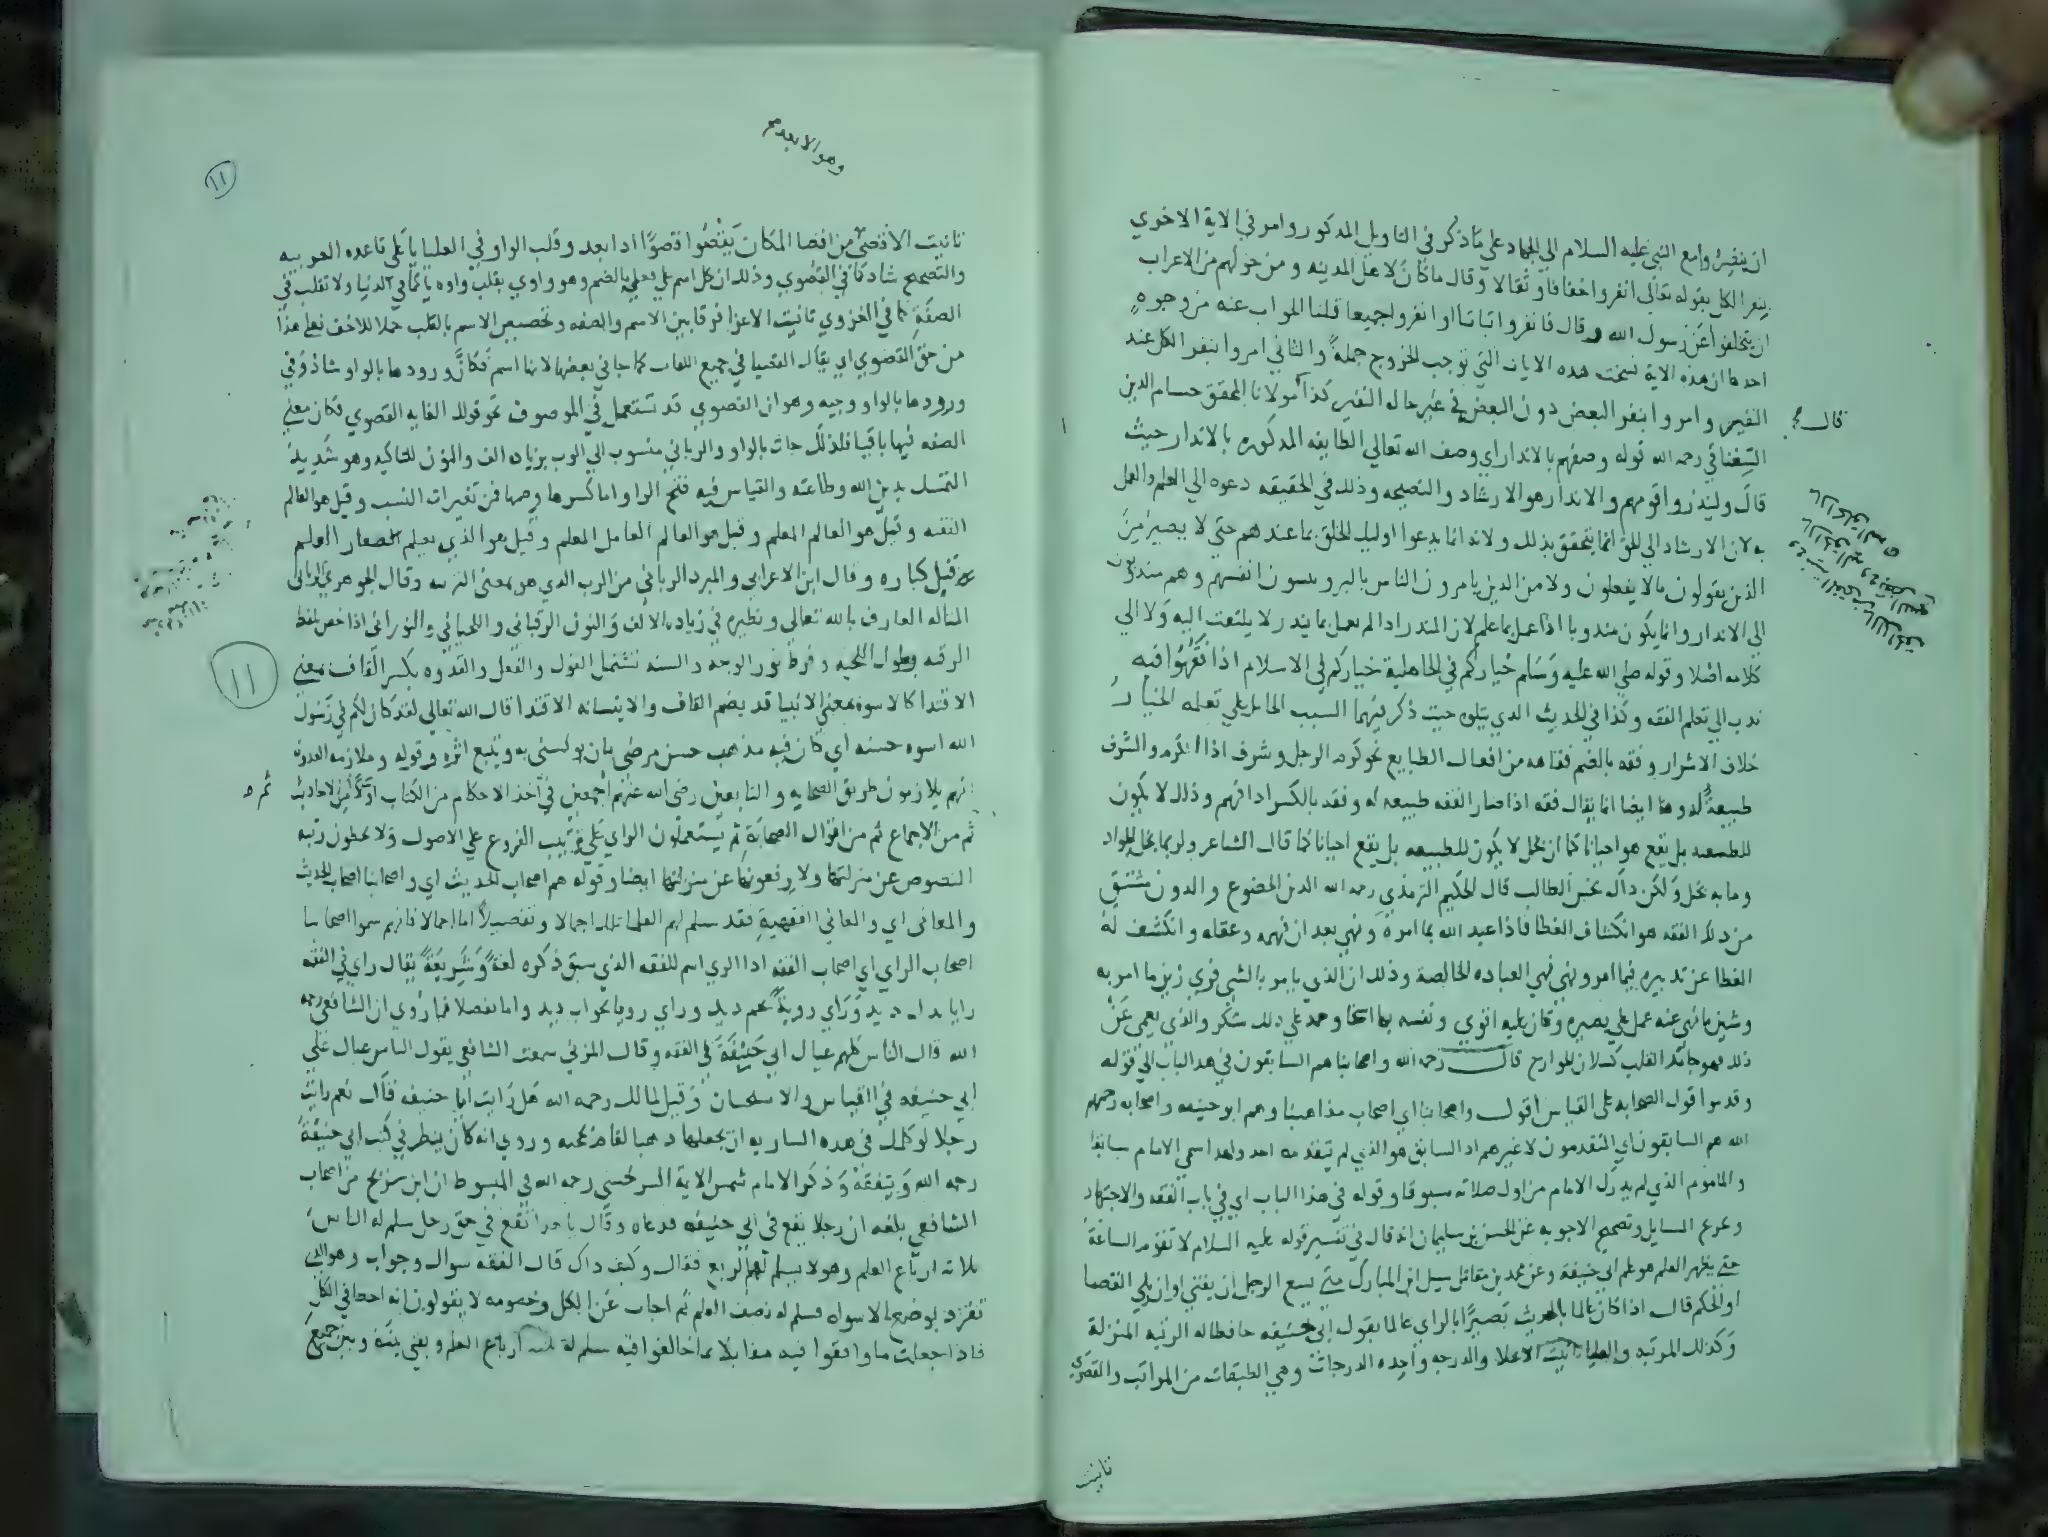 ان ينفروا مع النبي عليه السلام الي الجهاد علي ما ذكر في التاويل المذكور وامر في الاية الاخري
بنفر الكل بقوله تعالي انفروا خفافا وثقالا وقال ما كان لاهل المدينه ومن حولهم من الاعراب
ان يتخلفوا عن رسول الله وقال فانفروا ثباتا او انفروا جميعا قلنا الجواب عنه من وجوه
احدها ان هذه الاية نسخت هذه الايات التي توجب الخروج جملة والثاني امروا بنفر الكل عند
النفير وامروا بنفر البعض دون البعض في غير حاله النفير كذا مولانا المحقق حسام الدين
قال
السغناقي رحمه الله قوله وصفهم بالانذار اي وصف الله تعالي الطايفه المذكوره بالانذار حيث
قال ولينذروا قومهم والانذار هو الارشاد والنصيحه وذلك في الحقيقه دعوه الي العلم والعمل
به لان الارشاد الي انما يتحقق بذلك ولانه انما يدعوا اوليك الخلق بما عندهم حتي لا يصير من
الذين يقولون ما لا يفعلون ولا من الذين يامرون الناس بالبر وينسون انفسهم وهم مندوبون
الي الانذار وانما يكون مندوبا اذا عمل بما علم لان المنذر اذا لم يعمل بما ينذر لا يلتفت اليه ولا الي
كلامه اصلا وقوله صلي الله عليه وسلم خياركم في الجاهلية خياركم في الاسلام اذا فقهوا فيه
ندب الي تعلم الفقه وكذا في الحديث الذي يتلوه حيث ذكر فيهما السبب الحامل علي تعلمه الخيار
خلاف الاشرار وفقه بالضم فقاهه من افعال الطبايع نحو كرم الرجل وشرف اذا الكرم والشرف
طبيعة له وهنا ايضا انما يقال فقه اذا صار الفقه طبيعه له وفقه بالكسر اذا فهم وذلك لا يكون
للطبيعه بل يقع هو احيانا كما ان بخل لا يكون للطبيعه بل يقع احيانا كما قال الشاعر ولربما بخل الجواد
وما به بخل ولكن ذاك بخس الطالب قال الحكيم الترمذي رحمه الله الدين الخضوع والدون مشتق
من ذلك الفقه هو انكشاف الغطا فاذا عبد الله بما امره ونهي بعد ان فهمه وعقله وانكشف له
الغطا عن تدبيره فيما امر ونهي فهي العباده الخالصة وذلك ان الذي يامر بالشي فري زين ما امر به
وشين ما نهي عنه عمل علي بصيره وكان عليه اقوي ونفسه بها اسخا وحمد علي ذلك شكر والذي يعمي عن
ذلك فهو جامد القلب كسلان الجوارح قال رحمه الله واصحابنا هم السابقون في هذا الباب الي قوله
وقدموا قول الصحابه علي القياس اقول واصحابنا اي اصحاب مذاهبنا وهم ابو حنيفه واصحابه رحمهم
الله هم السابقون اي المتقدمون لا غيرهم اذ السابق هو الذي لم يتقدمه احد ولهذا سمي الامام سابقا
والماموم الذي لم يدرك الامام من اول صلاته مسبوقا وقوله في هذا الباب اي في باب الفقه والاجتهاد
السايل وتصحيح الاجوبه عن الحسن بن سليمان انه قال في تفسير قوله عليه السلام لا تقوم الساعة
حتي يظهر العلم هو علم ابي حنيفة وعن محمد بن مقاتل سيل ابن المبارك متي يسع الرجل ان يفتي او ان يلي القضا
او الحكم قال اذا كان عالما بالحديث بصيرا بالراي عالما بقول ابي حنيفه حافظا له الرتبه المنزلة
وكذلك المرتبه والعليا تانيث الاعلا والدرجه واحده الدرجات وهي الطبقات من المراتب والقصوي
تانيث
وهو الابعد
١١
تانيث الاقصي من اقصا المكان يقصوا قصوا اذا بعد وقلب الواو في العليا يا علي قاعده العربيه
والتصحيح شاذ كما في القصوي وذلك ان كل اسم علي فعلي بالضم وهو واوي بقلب واوه يا كما في الدنيا ولا تقلب في
الصفة كما في الغزوي تانيث الاغزا فرقا بين الاسم والصفه وتخصيص الاسم بالقلب حملا للاخف فعلي هذا
من حق القصوي ان يقال القصيا في جميع اللغات كما جا في بعضها لانها اسم فكان ورودها بالواو شاذ وفي
ورودها بالواو وجيه وهو ان القصوي قد تستعمل في الموصوف نحو قولك الغايه القصوي فكان معني
الصفه فيها باقيا فلذلك جات بالواو والرباني منسوب الي الرب بزياده الف والنون للتاكيد وهو شديد
التمسك بدين الله وطاعته والقياس فيه فتح الرا واما كسرها وضمها فمن تغيرات النسب وقيل هو العالم
الفقه وقيل هو العالم المعلم وقيل هو العالم العامل المعلم وقيل هو الذي يعلم الصغار العلم
قبل كباره وقال ابن الاعرابي والمبرد الرباني من الرب الذي هو بمعني التربيه وقال الجوهري الرباني
المتاله العارف بالله تعالي ونظيره في زياده الالف والنون الرقباني واللحياني والنوراني اذا خص بغلظ
الرقبه وطول اللحيه وفرط نور الوجه والسنه تشتمل القول والفعل والقدوه بكسر القاف بمعني
١١
الاقتدا كالاسوه بمعني الايتسا قد يضم القاف والايتسا به الاقتدا قال الله تعالي لقد كان لكم في رسول
الله اسوه حسنه اي كان فيه مذهب حسن مرضي بان يوتسي به ويتبع اثره وقوله وملازمه القدوه
انهم يلازمون طريق الصحابه والتابعين رضي الله عنهم اجمعين في اخذ الاحكام من الكتاب اولا ثم من الاحاديث
ثم من الاجماع ثم من اقوال الصحابة ثم يستعملون الراي علي ترتيب الفروع علي الاصول ولا يحطون رتبه
النصوص عن منزلتها ولا يرفعونها عن منزلتها ايضا وقوله هم اصحاب الحديث اي واصحابنا اصحاب الحديث
والمعاني اي والمعاني الفقهية فقد سلم لهم العلما ذلك اجمالا وتفصيلا اما اجمالا فانهم سموا اصحابنا
اصحاب الراي اي اصحاب الفقه اذا الراي اسم للفقه الذي سبق ذكره لغة وشريعة يقال راي في الفقه
رايا بدل ديد وراي روية بجسم ديد وراي رويا بخواب ديد واما تفصلا فما روي ان الشافعي رحمه
الله قال الناس كلهم عيال ابي حنيفة في الفقه وقال المزني سمعت الشافعي يقول الناس عيال علي
ابي حنيفه في القياس والاستحسان وقيل لمالك رحمه الله هل رايت ابا حنيفه فقال نعم رايت
رجلا لو كلمك في هذه الساريه ان يجعلها ذهبا لقام بحجته وروي انه كان ينظر في كتب ابي حنيفة
رحمه الله ويتفقه وذكر الامام شمس الايمة السرخسي رحمه الله في المبسوط ان ابن سريج من اصحاب
الشافعي بلغه ان رجلا يقع في ابي حنيفه فدعاه وقال يا هذا تقع في حق رجل سلم له الناس
ثلاثه ارباع العلم وهو لا يسلم لهم الربع فقال وكيف ذاك قال الفقه سوال وجواب وهو الذي
تفرد بوضع الاسوله فسلم له نصف العلم ثم اجاب عن الكل وخصومه لا يقولون انه اخطا في الكل
فاذا جعلت ما وافقوا فيه مقابلا بما خالفوا فيه سلم له ثلثه ارباع العلم وبقي بينه وبين جميعهم